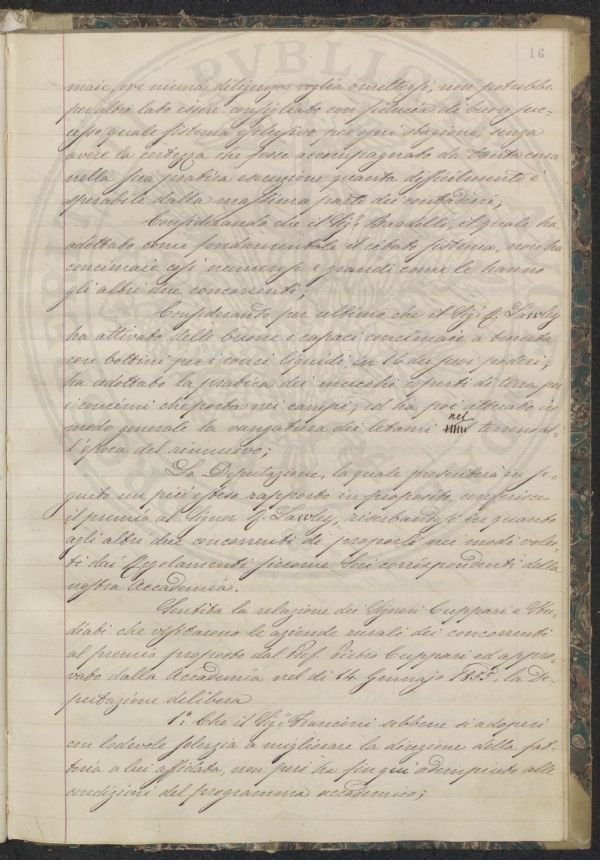 16
maie, ove niuna diligenza voglia omettersi, non potrebbe
per altro lato esser consigliato con fiducia di buon suc-
cesso quale sistema esclusivo per ogni stagione, senza
avere la certezza che fosse accompagnato da tanta cura
nella sua pratica esecuzione quanta difficilmente è
sperabile dalla massima parte dei contadini;
Considerando che il Sig.r Bardelli, il quale ha
adottato come fondamentale il citato sistema, non ha
concimaie così numerose e grandi come le hanno
gli altri due concorrenti;
Considerando per ultimo che il Sig. R. Lawley
ha attivato delle buone e capaci concimaie a tenuta
con bottini per i conci liquidi in 16 dei suoi poderi;
ha adottato la pratica dei mucchi coperti di terra per
i concimi che porta nei campi; ed ha poi attuato in
modo generale la vangatura dei letami nel terreno al-
l'epoca del rinnuovo;
La Deputazione, la quale presenterà in se-
guito un più esteso rapporto in proposito, conferisce
il premio al Signor R. Lawley, riserbandosi in quanto
agli altri due concorrenti di proporli nei modi volu-
ti dai Regolamenti siccome Soci corrispondenti della
nostra Accademia.
Sentita la relazione dei Signori Cuppari e Stu-
diati che visitarono le aziende rurali dei concorrenti
al premio proposto dal Prof. Pietro Cuppari ed appro-
vato dalla Accademia nel dì 14 Gennajo 1855, la De-
putazione delibera
1.° Che il Sig.r Francini sebbene si adoperi
con lodevole solerzia a migliorare la direzione della fat-
toria a lui affidata, non però ha fin qui adempiuto alle
condizioni del programma accademico;